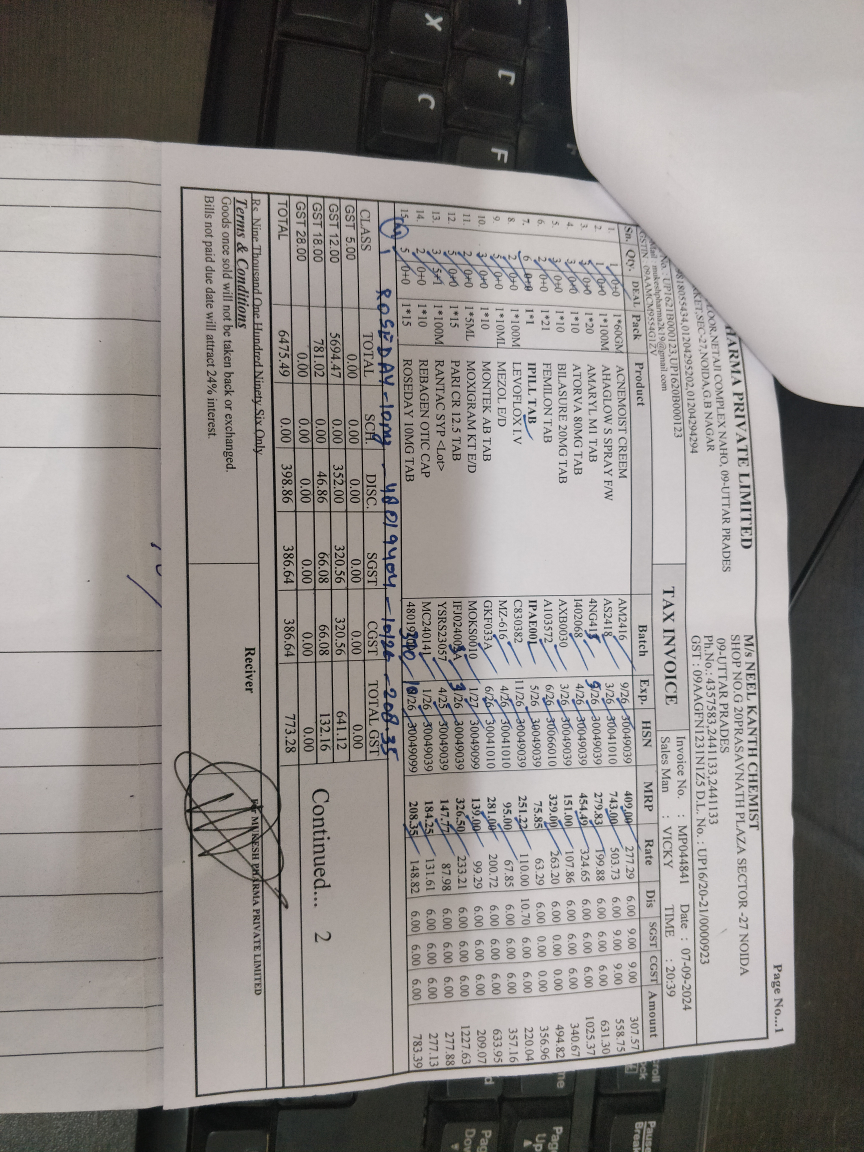 Page No...1
HARMA PRIVATE LIMITED
LOOR, NETAJI COMPLEX NAHO, 09-UTTAR PRADES
RKET,SEC-27,NOIDA,G.B NAGAR
818055434,01204295202,01204294294
No. : UP1621B000123,UP1620B000123
mail mukeshpharma2k19@gmail.com
GSTIN 09AAMCM9954G1ZV
M/s NEEL KANTH CHEMIST
SHOP NO.G 20PRASAVNATH PLAZA SECTOR -27 NOIDA
09-UTTAR PRADES
Ph.No.: 4357583,2441133,2441133
GST : 09AAGFN1231N1Z5 D.L. No. : UP16/20-21/0000923
TAX INVOICE
Invoice No. : MP044841 Date : 07-09-2024
Sales Man : VICKY TIME : 20:39
Sn. Qty. DEAL Pack Product Batch Exp. HSN MRP Rate Dis SGST CGST Amount
1. 1 0+0 1*60GM ACNEMOIST CREEM AM2416 9/26 30049039 409.00 277.29 6.00 9.00 9.00 307.57
2. 1 0+0 1*100M AHAGLOW S SPRAY F/W AS2418 3/26 30041010 743.00 503.73 6.00 9.00 9.00 558.75
3. 0+0 1*20 AMARYL M1 TAB 4NG4 9/26 30049039 279.83 199.88 6.00 6.00 6.00 631.30
4. 3 0+0 1*10 ATORVA 80MG TAB I402068 4/26 30049039 454.49 324.65 6.00 6.00 6.00 1025.37
5. 3 0+0 1*10 BILASURE 20MG TAB AXB0030 3/26 30049039 151.00 107.86 6.00 6.00 6.00 340.67
6. 2 0+0 1*21 FEMILON TAB A103572 6/26 30066010 329.00 263.20 6.00 0.00 0.00 494.82
7. 6 0+0 1*1 IPILL TAB IPAE001 5/26 30049039 75.85 63.29 6.00 0.00 0.00 356.96
8. 2 0+0 1*100M LEVOFLOX I.V C830382 11/26 30049039 251.22 110.00 10.70 6.00 6.00 220.04
9. 5 0+0 1*10ML MEZOL E/D MZ-616 4/26 30041010 95.00 67.85 6.00 6.00 6.00 357.16
10. 3 0+0 1*10 MONTEK AB TAB GKF033A 6/26 30041010 281.00 200.72 6.00 6.00 6.00 633.95
11. 2 0+0 1*5ML MOXIGRAM KT E/D MOKS0010 1/27 30049099 139.00 99.29 6.00 6.00 6.00 209.07
12. 5 0+0 1*15 PARI CR 12.5 TAB IFJ02403A 3/26 30049039 326.50 233.21 6.00 6.00 6.00 1227.63
13. 3 5+1 1*100M RANTAC SYP <Lot> YSRS23057 4/25 30049039 147.77 87.98 6.00 6.00 6.00 277.88
14. 2 0+0 1*10 REBAGEN OTIC CAP MC24014 1/26 30049039 184.25 131.61 6.00 6.00 6.00 277.13
15. 5 0+0 1*15 ROSEDAY 10MG TAB 48019390 10/26 30049099 208.35 148.82 6.00 6.00 6.00 783.39
1 ROSEDAY-10mg - 48019404 - 10/26 - 208.35
CLASS TOTAL SCH. DISC. SGST CGST TOTAL GST
GST 5.00 0.00 0.00 0.00 0.00 0.00 0.00
GST 12.00 5694.47 0.00 352.00 320.56 320.56 641.12
GST 18.00 781.02 0.00 46.86 66.08 66.08 132.16
GST 28.00 0.00 0.00 0.00 0.00 0.00 0.00
TOTAL 6475.49 0.00 398.86 386.64 386.64 773.28
Continued... 2
Rs. Nine Thousand One Hundred Ninety Six Only
Terms & Conditions
Goods once sold will not be taken back or exchanged.
Bills not paid due date will attract 24% interest.
Reciver
MUKESH PHARMA PRIVATE LIMITED
X
C
D
F
Pause
Break
Page
Up
Page